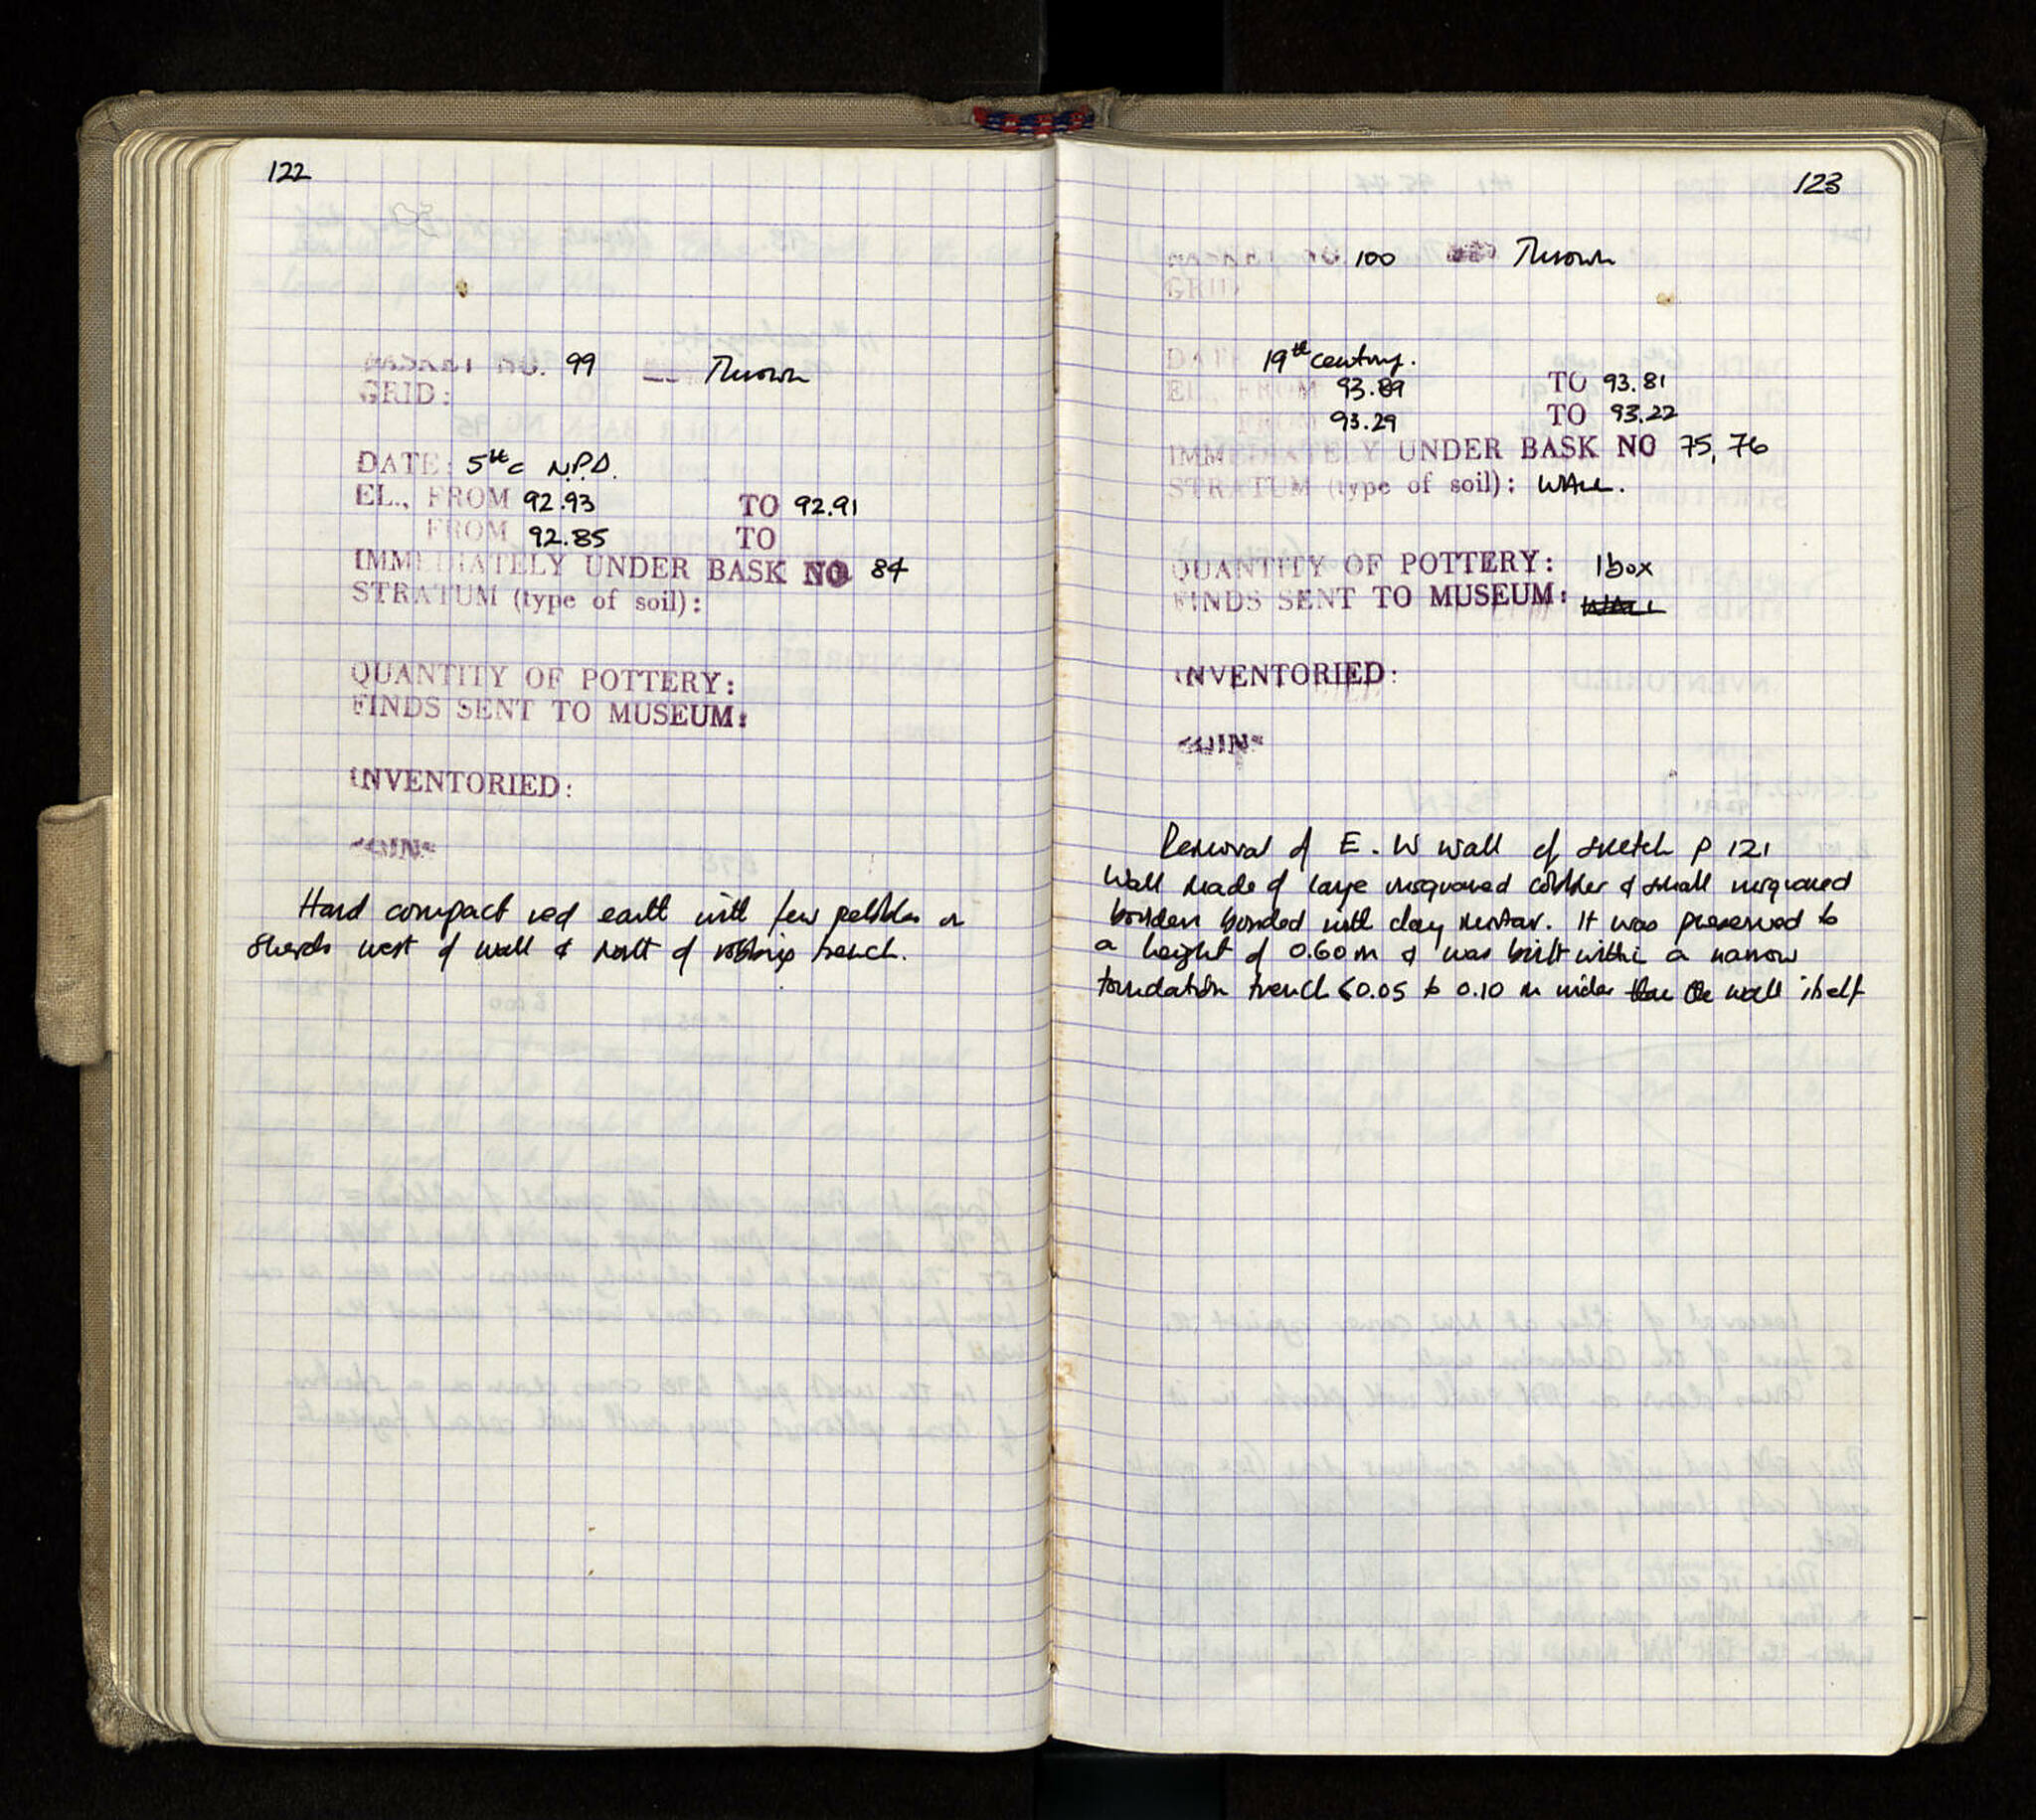 122
BASKET NO. 99 Thrown
GRID:
DATE: 5th c N.P.D.
EL., FROM 92.93 TO 92.91
FROM 92.85 TO
IMMEDIATELY UNDER BASK NO 84
STRATUM (type of soil):
QUANTITY OF POTTERY:
FINDS SENT TO MUSEUM:
INVENTORIED:
COINS
Hard compact red earth with few pebbles or
sherds west of wall & north of robbing trench.
123
BASKET NO 100 Thrown
GRID
DATE 19th century.
EL., FROM 93.89 TO 93.81
FROM 93.29 TO 93.22
IMMEDIATELY UNDER BASK NO 75, 76
STRATUM (type of soil): WALL.
QUANTITY OF POTTERY: 1 box
FINDS SENT TO MUSEUM: WALL
INVENTORIED:
COINS
Removal of E-W wall of sketch p 121
Wall made of large unsquared cobbles & small unsquared
boulders bonded with clay mortar. It was preserved to
a height of 0.60m & was built within a narrow
foundation trench 0.05 to 0.10 m wider than the wall itself